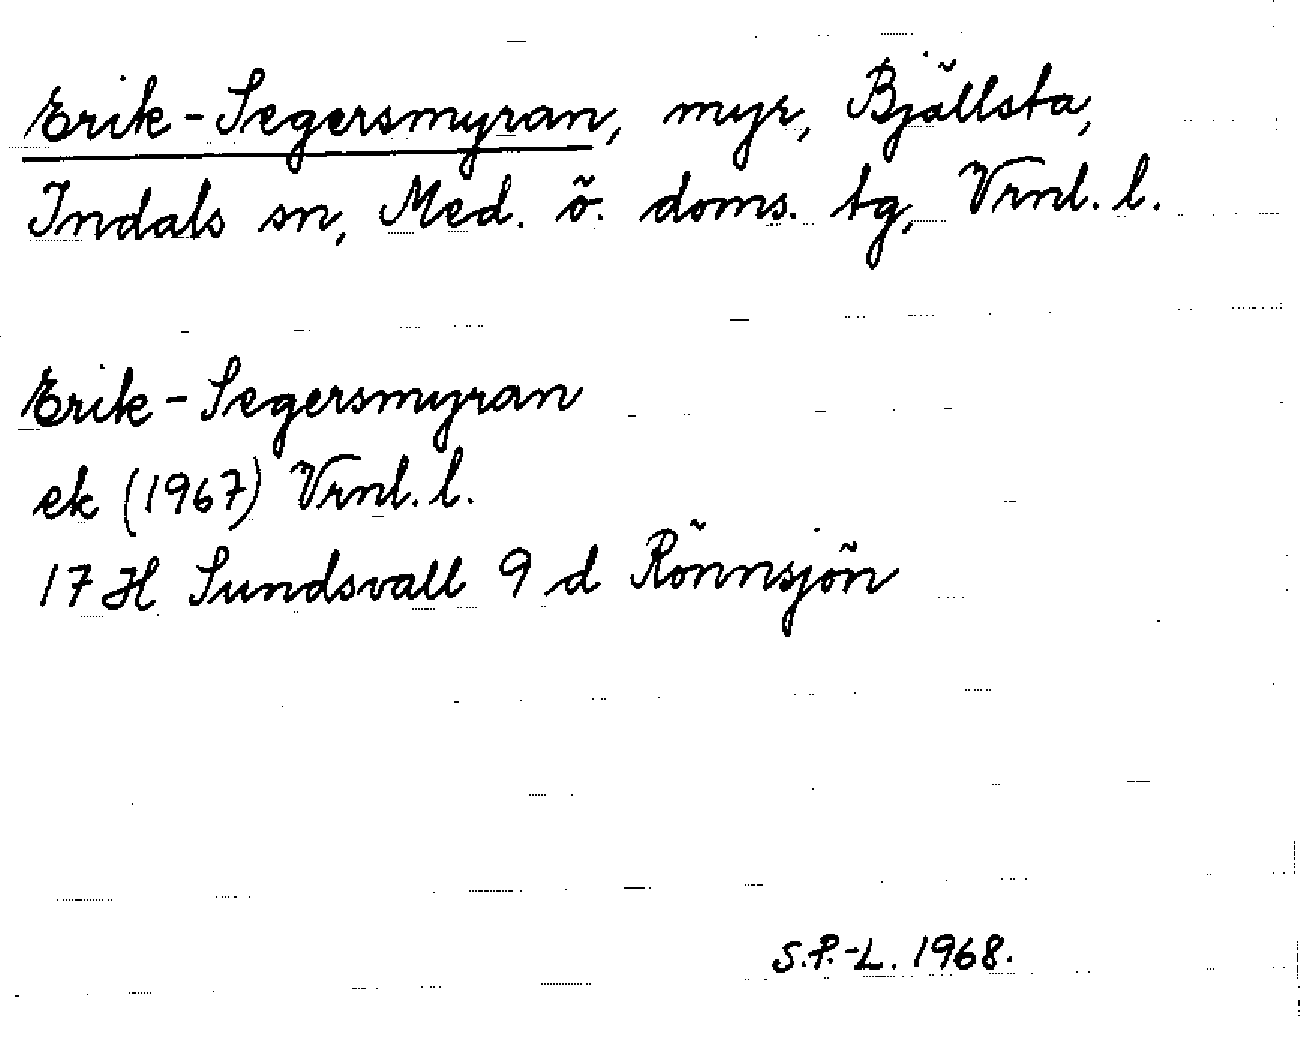 Erik-Segersmyran, myr, Bjällsta,
Indals sn, Med. ö. doms. tg, Vrnl. l.
Erik-Segersmyran
ek (1967) Vrnl. l.
17 H Sundsvall 9 d Rönnsjön
S.P.-L. 1968.